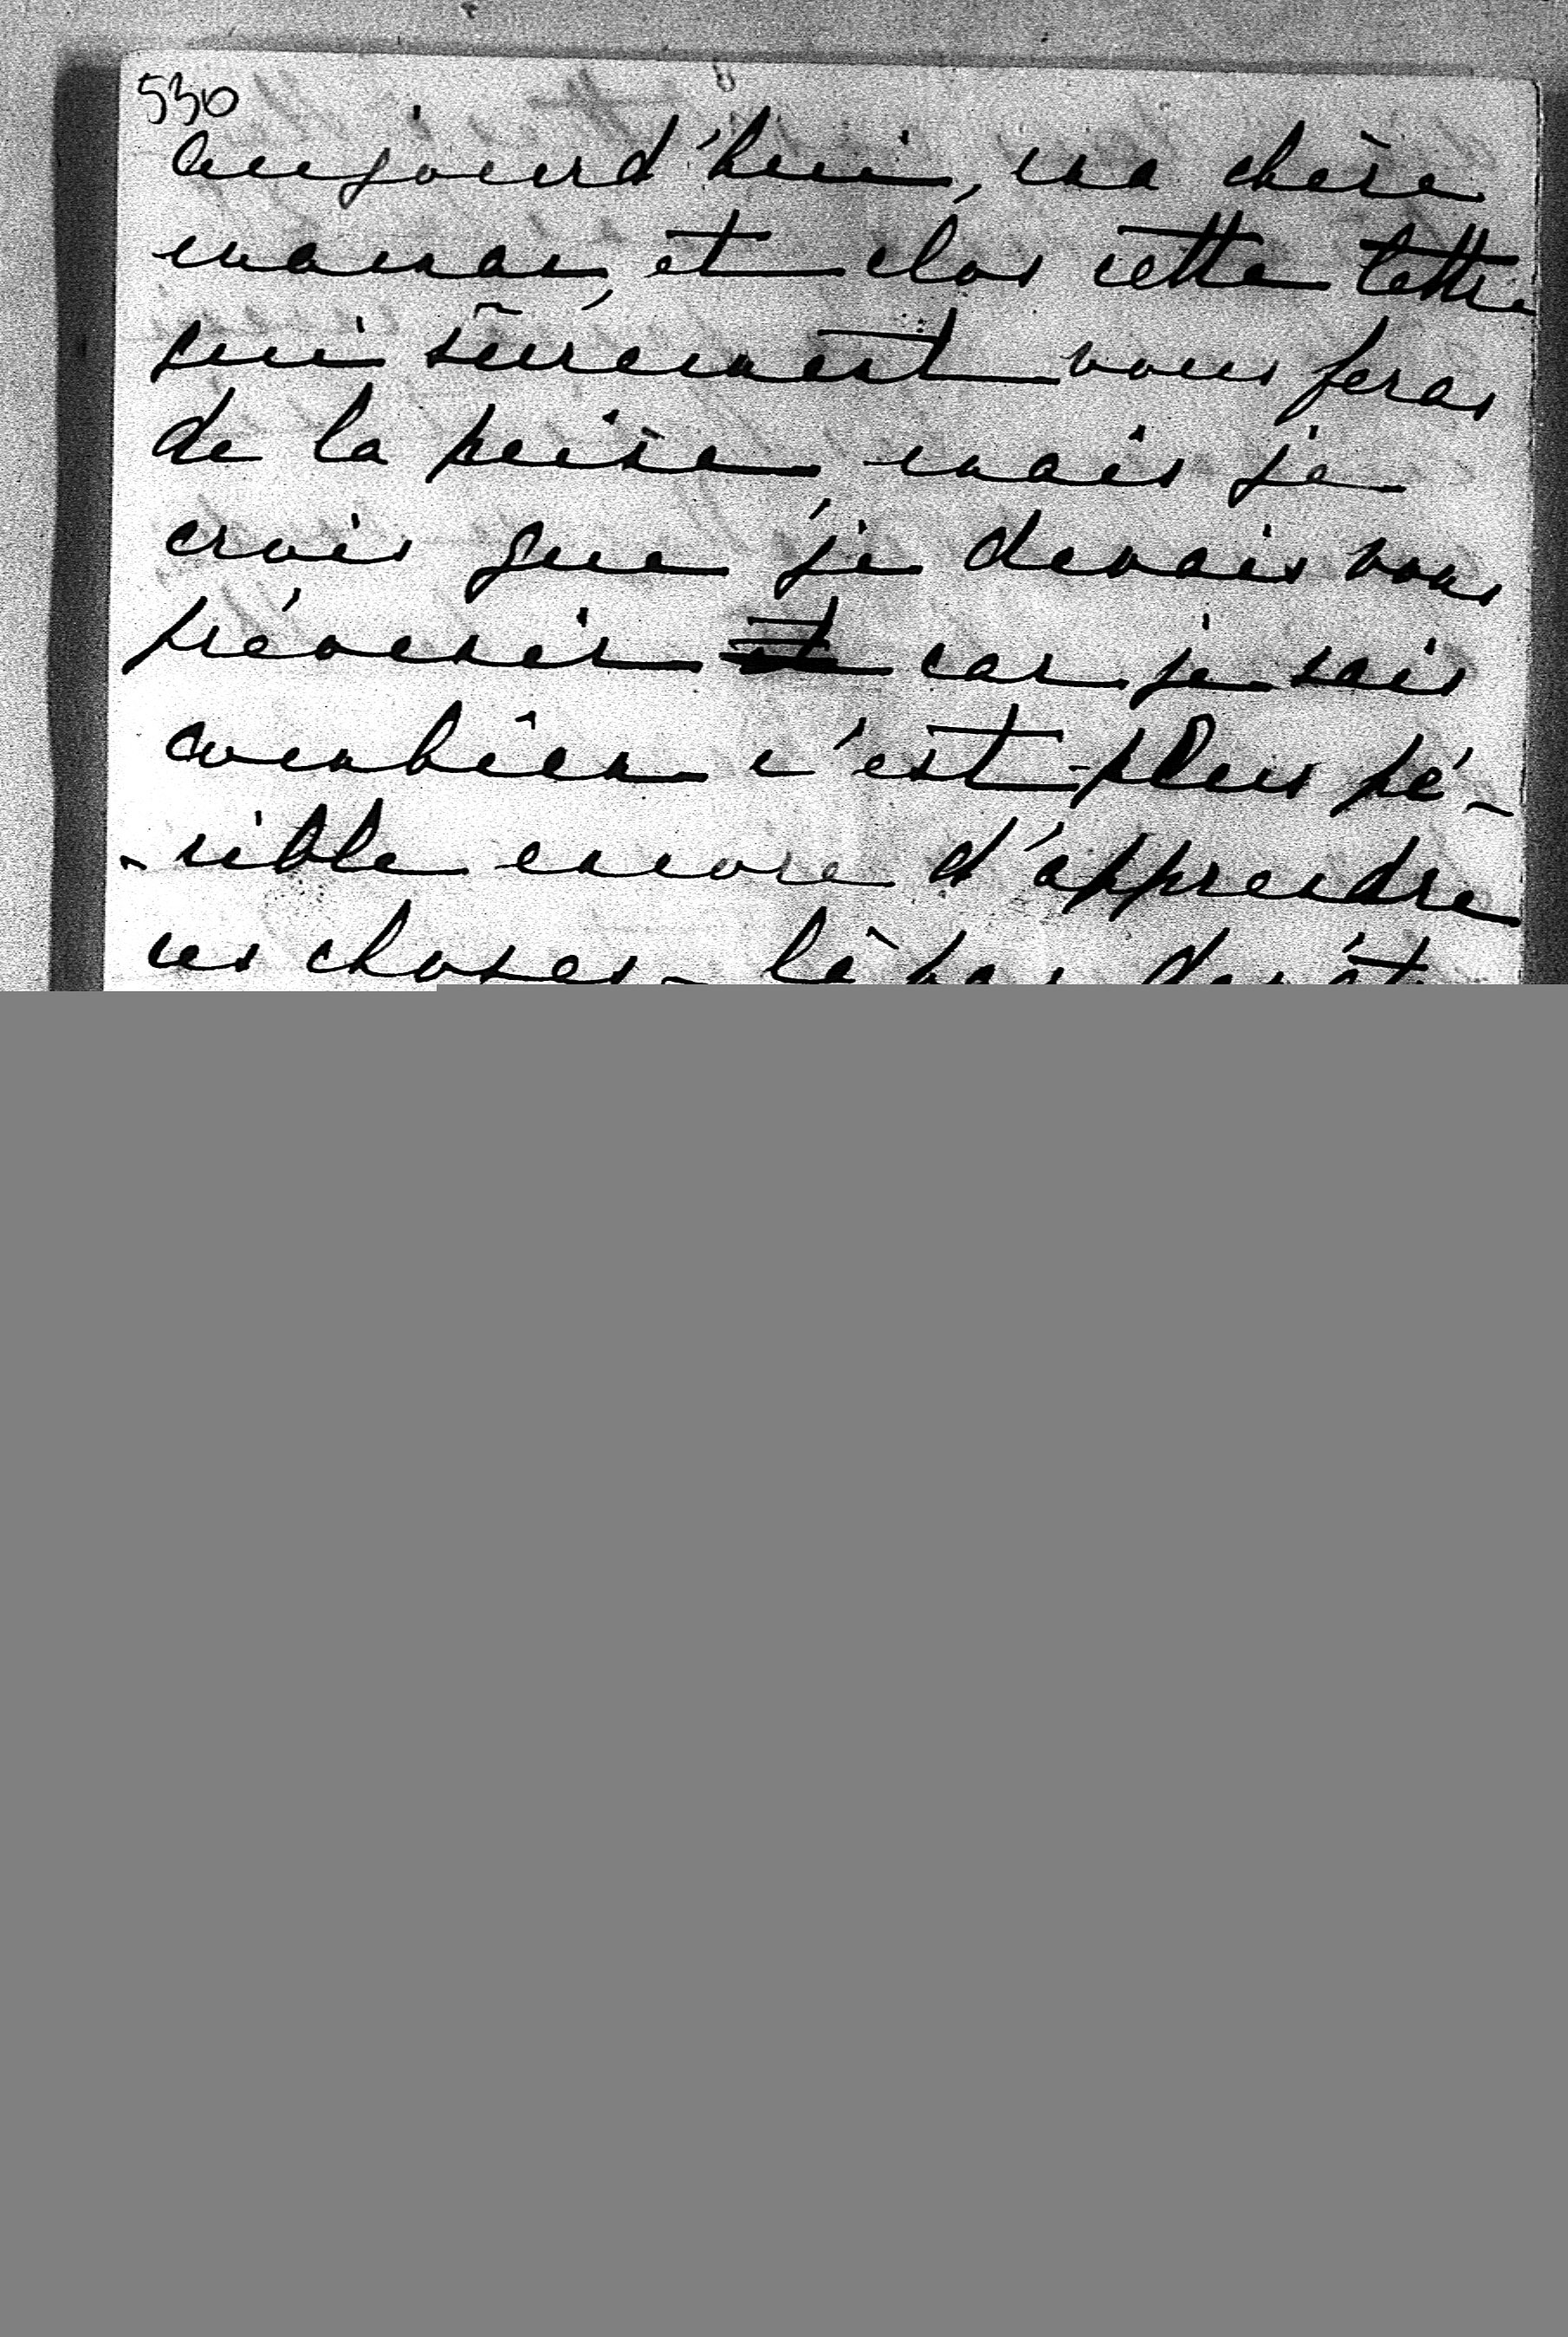 530
aujourd'hui, ma chère
maman, et clos cette lettre
qui sûrement vous feras
de la peine, mais je
crois que je devais vous
prévenir et car je sais
combien c'est plus pé-
-nible encore d'apprendre
ces choses-là par